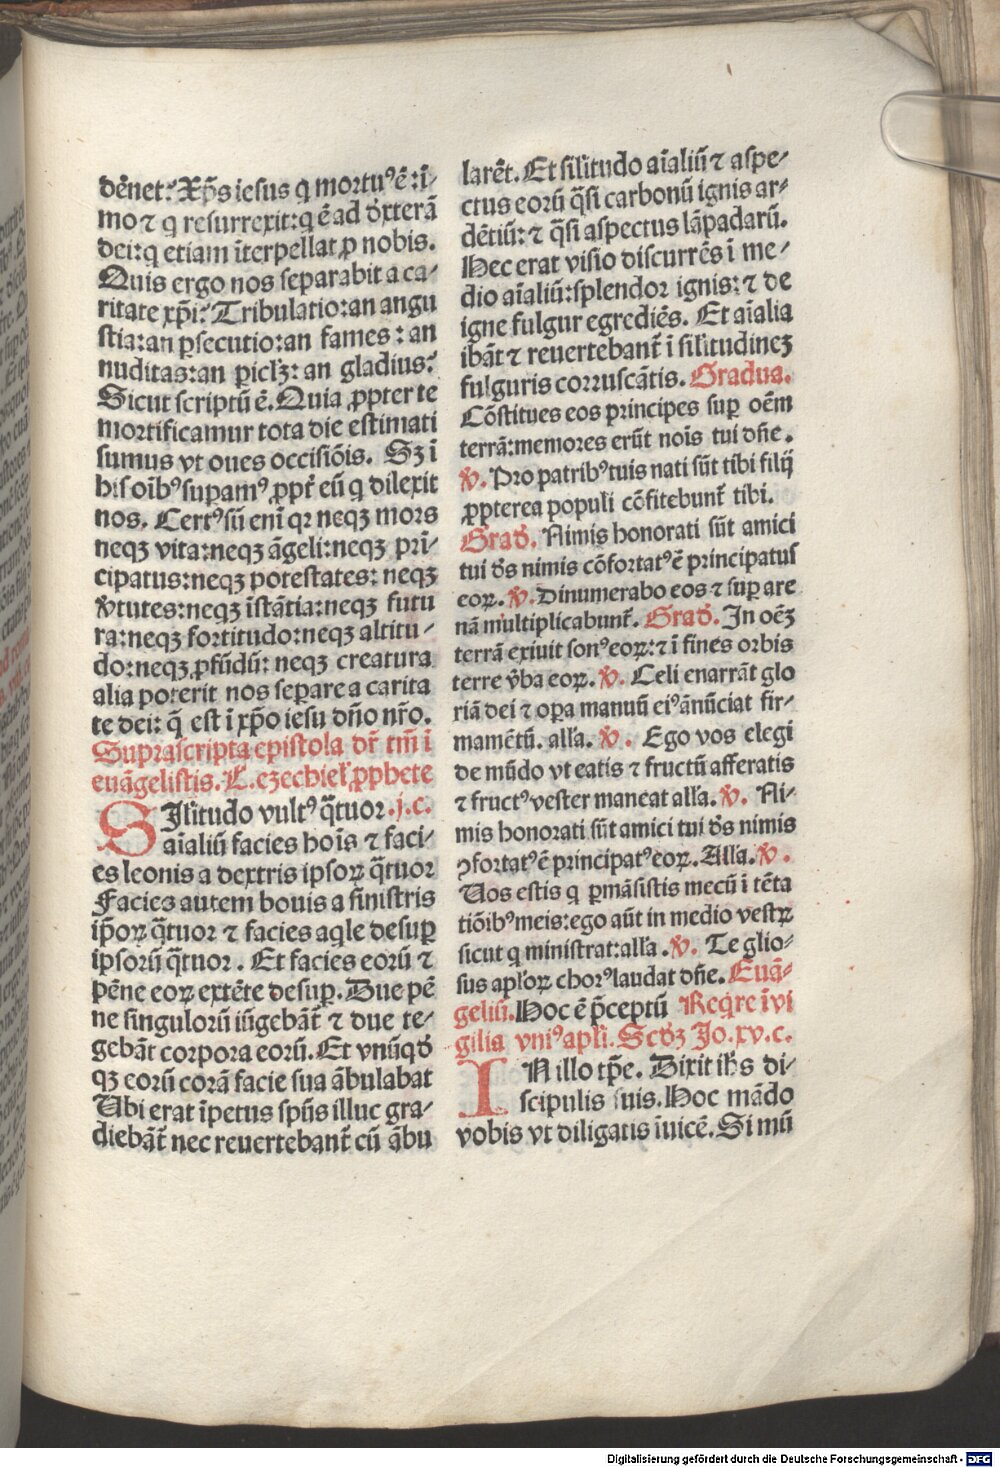 dēnet? Xp̄s iesus q mortuꝰ ē: ī-
mo ⁊ q resurrexit: q ē ad dexterā
dei: q etiam īterpellat ꝓ nobis.
Quis ergo nos separabit a ca-
ritate xp̄i? Tribulatio: an angu
stia: an ꝑsecutio: an fames: an
nuditas: an ꝑiclꝫ: an gladius?
Sicut scriptū ē. Quia ꝓpter te
mortificamur tota die estimati
sumus vt oues occisiōis. Sꝫ ī
his oībꝰ suꝑamꝰ ꝓpt̄ eū q dilexit
nos. Certꝰ sū enī qꝛ neqꝫ mors
neqꝫ vita: neqꝫ āgeli: neqꝫ prī-
cipatus: neqꝫ potestates: neqꝫ
v̄tutes: neqꝫ īstātia: neqꝫ futu
ra: neqꝫ fortitudo: neqꝫ altitu-
do: neqꝫ ꝓfūdū: neqꝫ creatura
alia poterit nos separe a carita
te dei: q̄ est ī xp̄o iesu dn̄o nr̄o.
Suprascripta epistola dr̄ tm̄ ī
euāgelistis. L. ezechiel̄ ꝓphete
SIl̄itudo vultꝰ q̄tuor .j.c.
aīaliū facies hoīs ⁊ faci-
es leonis a dextris ipsoꝝ q̄tuor
Facies autem bouis a sinistris
ip̄oꝝ q̄tuor ⁊ facies aq̄le desuꝑ
ipsorū q̄tuor. Et facies eorū ⁊
pēne eoꝝ extēte desuꝑ. Due pē
ne singulorū iūgebāt̄ ⁊ due te-
gebāt corpora eorū. Et vnūqd̄
qꝫ eorū corā facie sua ābulabat
Ubi erat īpetus spūs illuc gra-
diebāt̄ nec reuertebant̄ cū ābu
larēt. Et sil̄itudo aīaliū ⁊ aspe-
ctus eorū q̄si carbonū ignis ar-
dētiū: ⁊ q̄si aspectus lāpadarū.
Hec erat visio discurrēs ī me-
dio aīaliū: splendor ignis: ⁊ de
igne fulgur egrediēs. Et aīalia
ibāt ⁊ reuertebant̄ ī sil̄itudineꝫ
fulguris corruscātis. Gradua.
Cōstitues eos principes suꝑ oēm
terrā: memores erūt noīs tui dn̄e.
℣. Pro patribꝰ tuis nati sūt tibi filij
ꝓpterea populi cōfitebunt̄ tibi.
Grad̄. Nimis honorati sūt amici
tui d̄s nimis cōfortatꝰ ē principatus
eoꝝ. ℣. Dinumerabo eos ⁊ suꝑ are
nā multiplicabunt̄. Grad̄. In oēꝫ
terrā exiuit sonꝰ eoꝝ: ⁊ ī fines orbis
terre v̄ba eoꝝ. ℣. Celi enarrāt glo
riā dei ⁊ oꝑa manuū eiꝰ ānūciat fir-
mamētū. all̄a. ℣. Ego vos elegi
de mūdo vt eatis ⁊ fructū afferatis
⁊ fructꝰ vester maneat all̄a. ℣. Ni-
mis honorati sūt amici tui d̄s nimis
ꝯfortatꝰ ē principatꝰ eoꝝ. All̄a. ℣.
Uos estis q ꝑmāsistis mecū ī tēta
tiōibꝰ meis: ego aūt in medio vestꝝ
sicut q ministrat: all̄a. ℣. Te glio-
sus apl̄oꝝ chorꝰ laudat dn̄e. Euā-
geliū. Hoc ē p̄ceptū Req̄re ī vi
gilia vniꝰ apl̄i. Scd̄ꝫ Jo. xv. c.
IN illo tp̄e. Dixit ih̄s di-
scipulis suis. Hoc mādo
vobis vt diligatis iuicē. Si mū
Digitalisierung gefördert durch die Deutsche Forschungsgemeinschaft - DFG